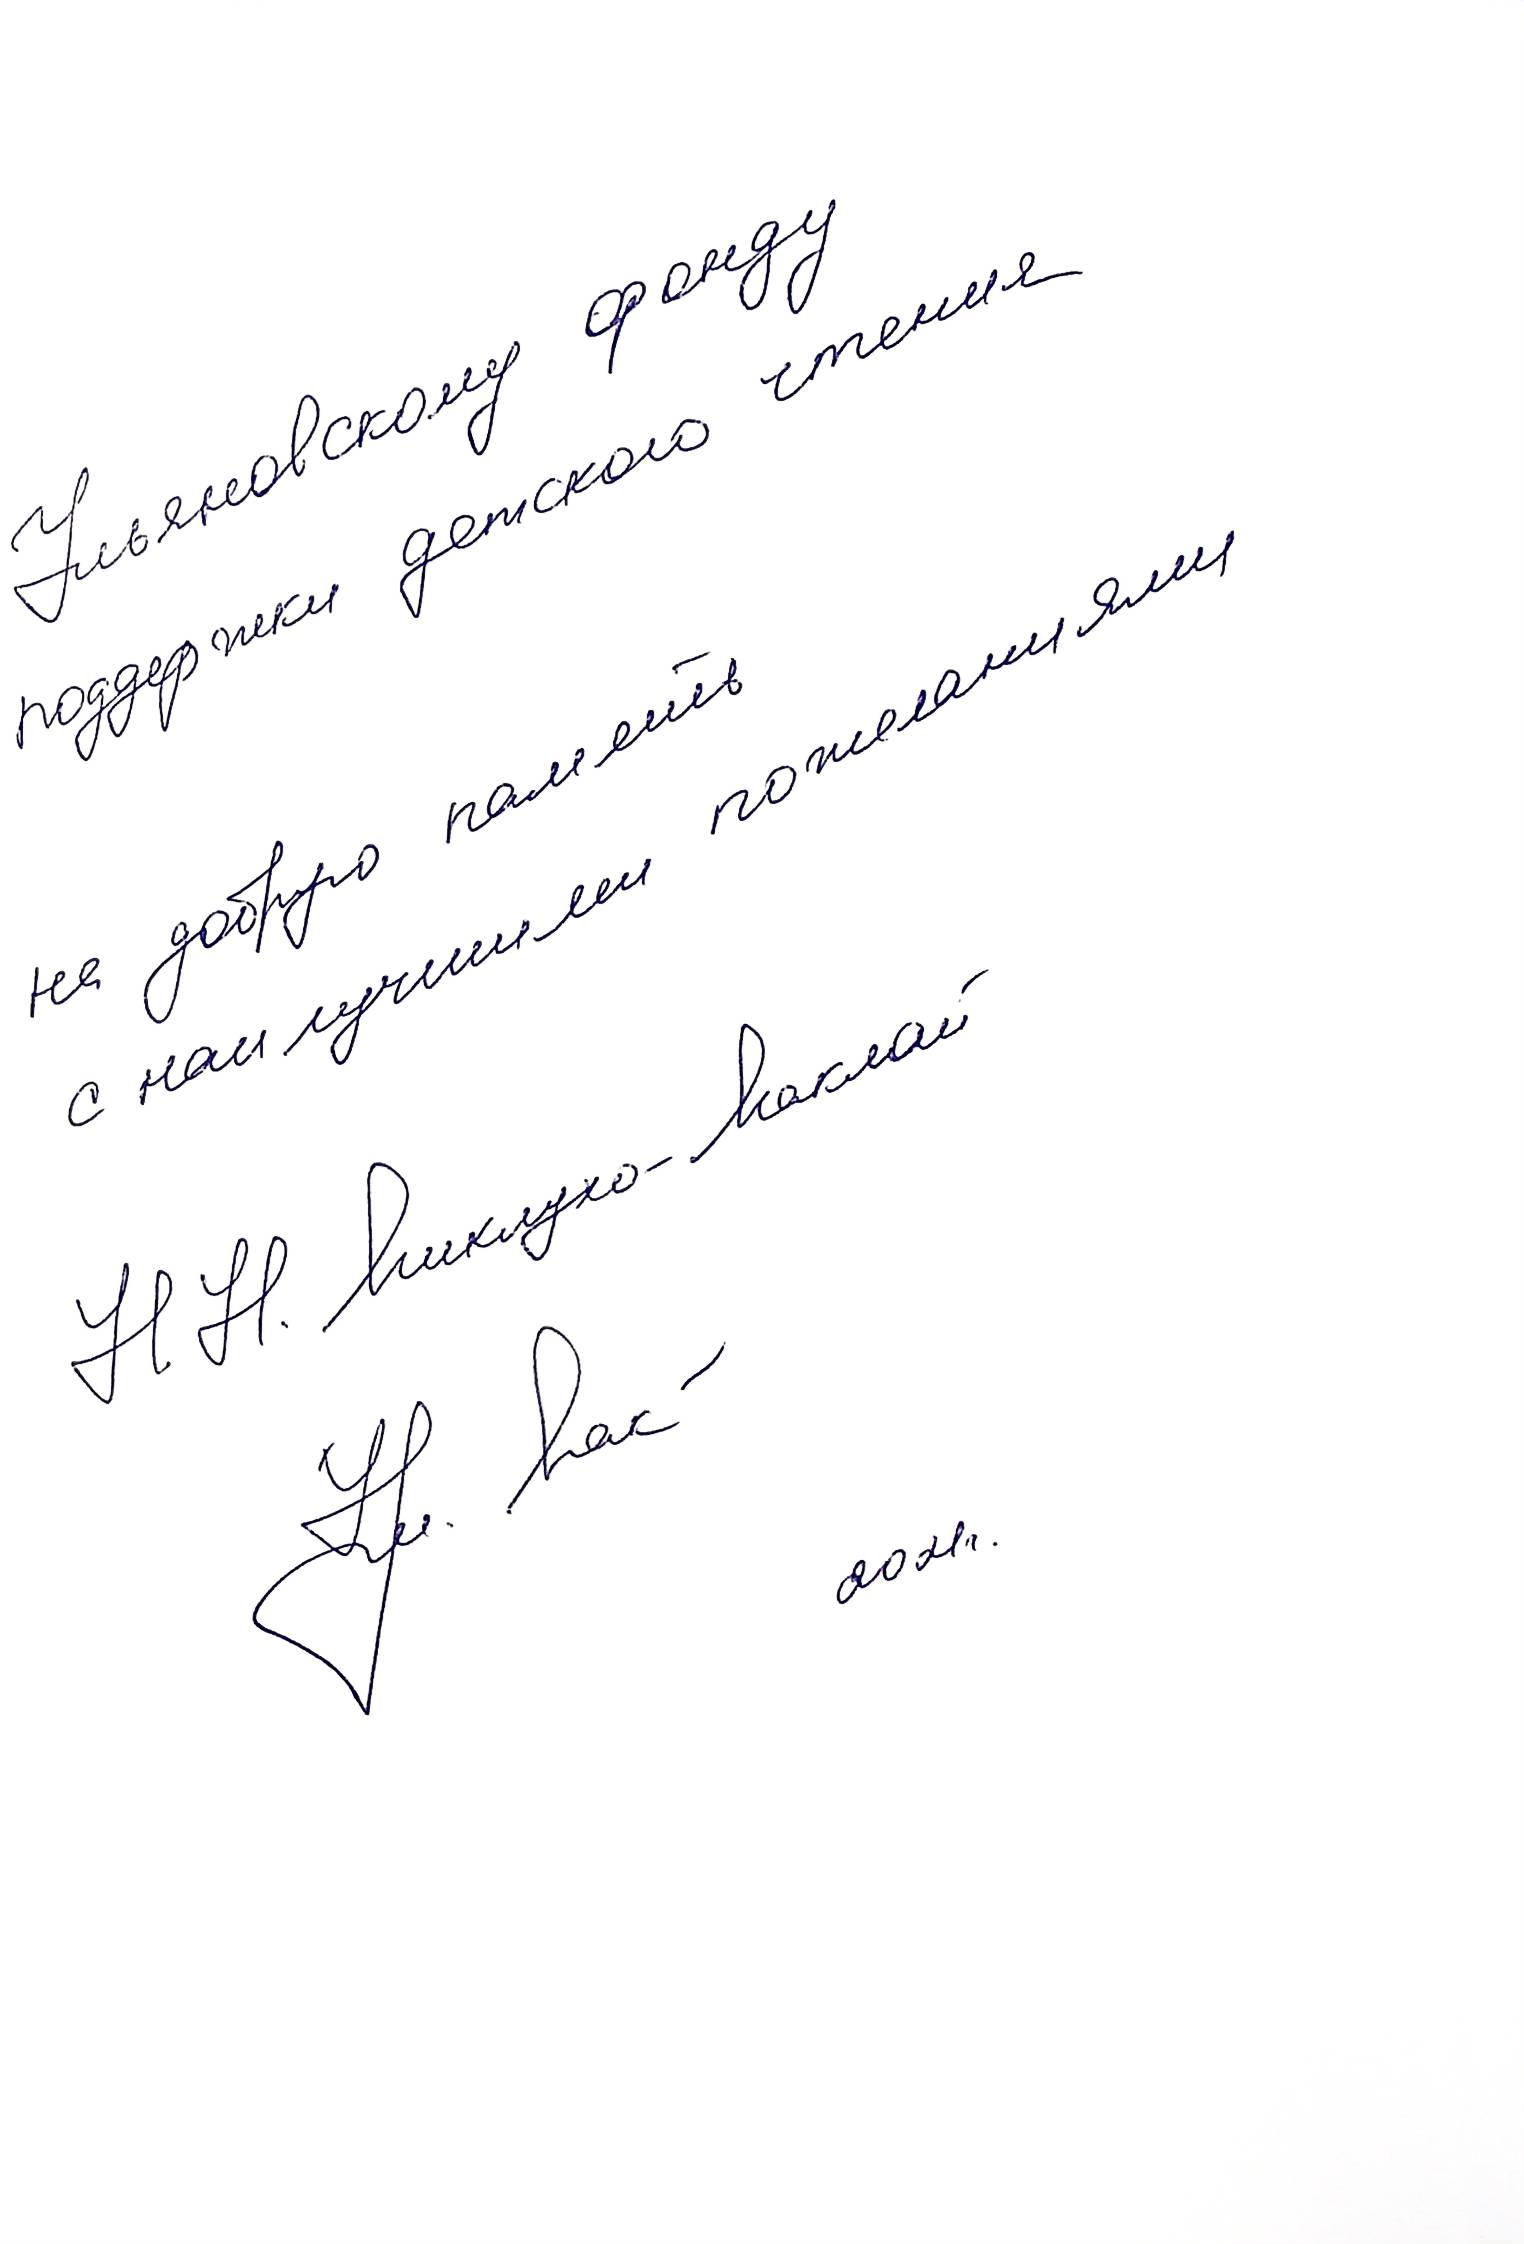 Ульяновскому фонду
поддержки детского чтения
на добрую память
с наилучшими пожеланиями
Н Н. Миклухо-Маклай
2021г.